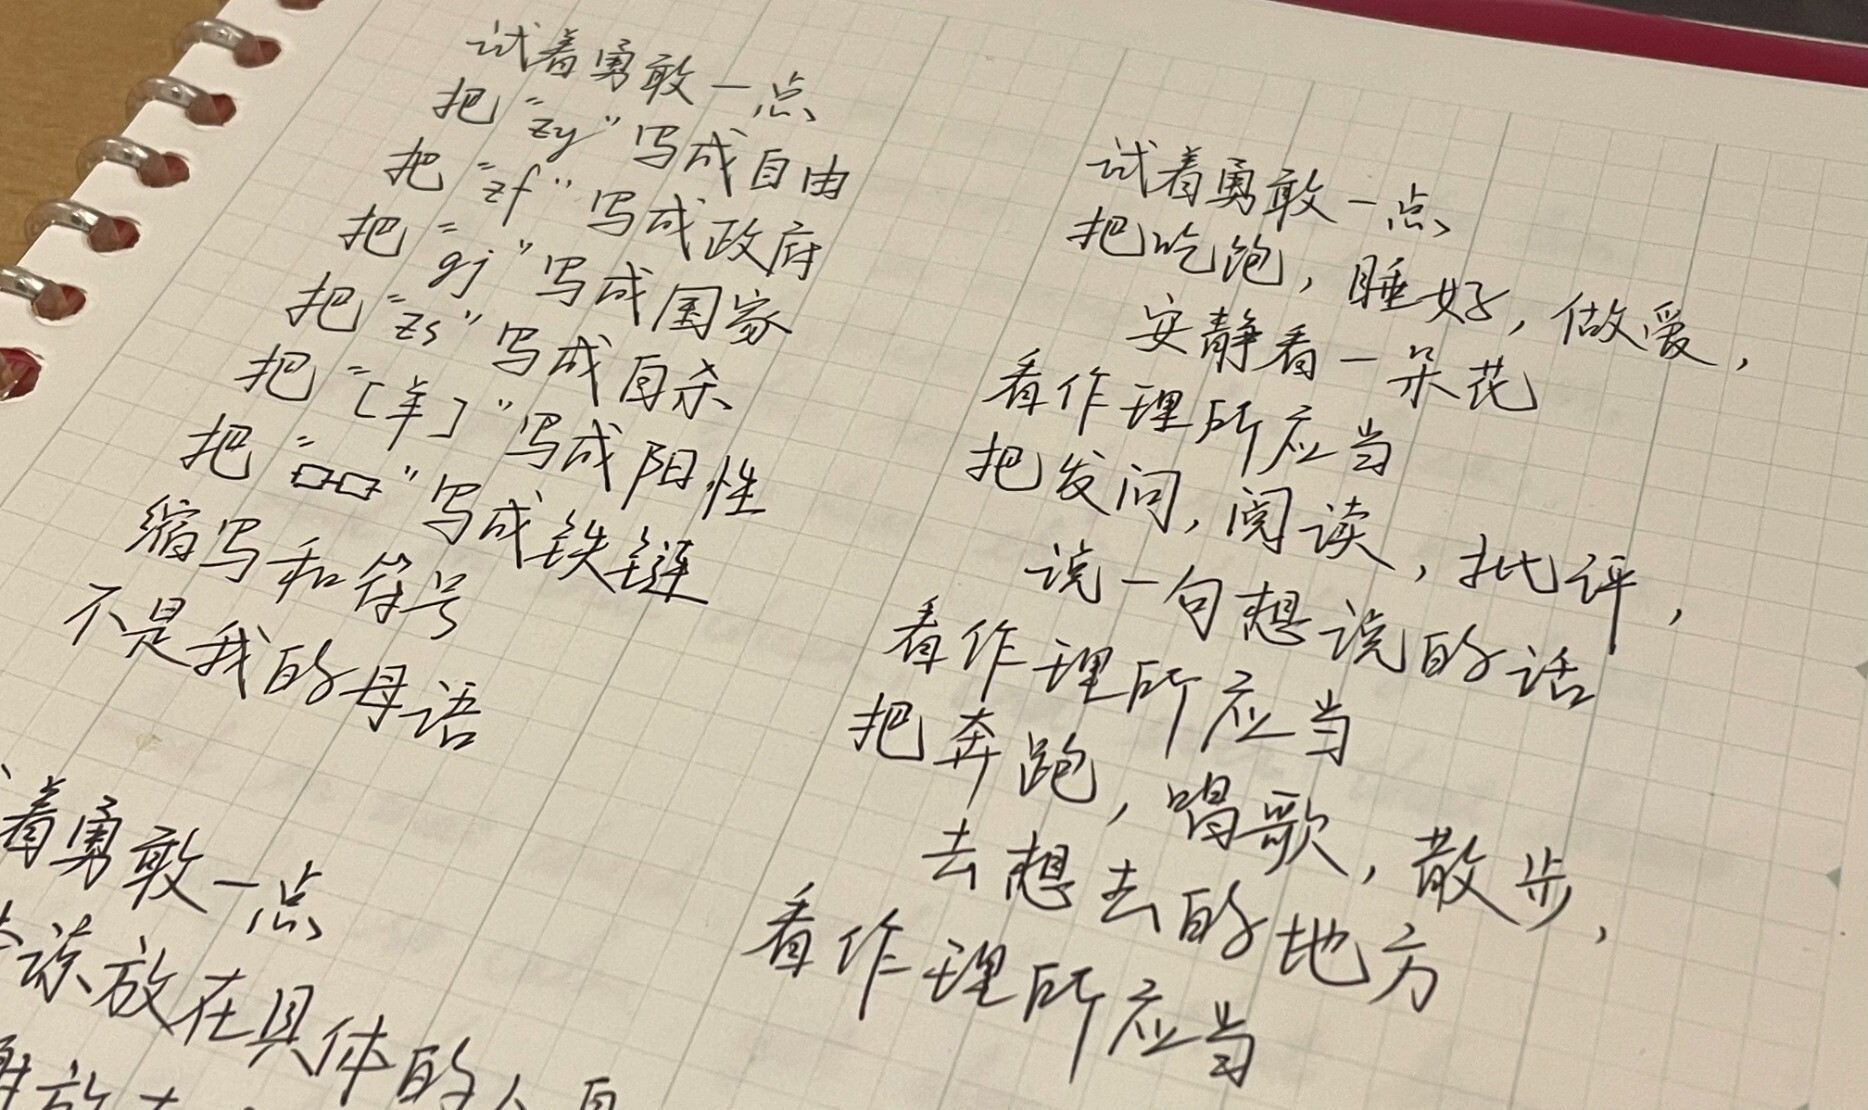 试着勇敢一点
把“zy”写成自由
把“zf”写成政府
把“gj”写成国家
把“zs”写成自杀
把“[羊]”写成阳性
把“”写成铁链
缩写和符号
不是我的母语
着勇敢一点
放在具体的人身
放在
试着勇敢一点
把吃饱,睡好,做爱,
安静看一朵花
看作理所应当
把发问,阅读,批评,
说一句想说的话
看作理所应当
把奔跑,唱歌,散步,
去想去的地方
看作理所应当